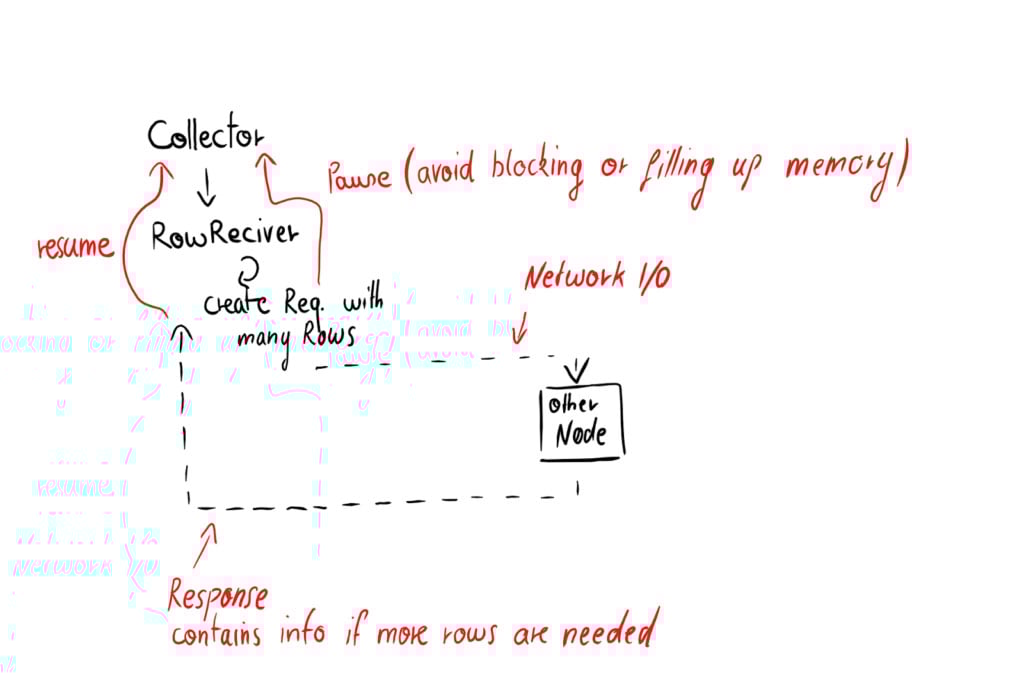 Collector
Pause (avoid blocking or filling up memory)
resume
RowReciver
Network I/O
create Req. with
many Rows
other
Node
Response
contains info if more rows are needed